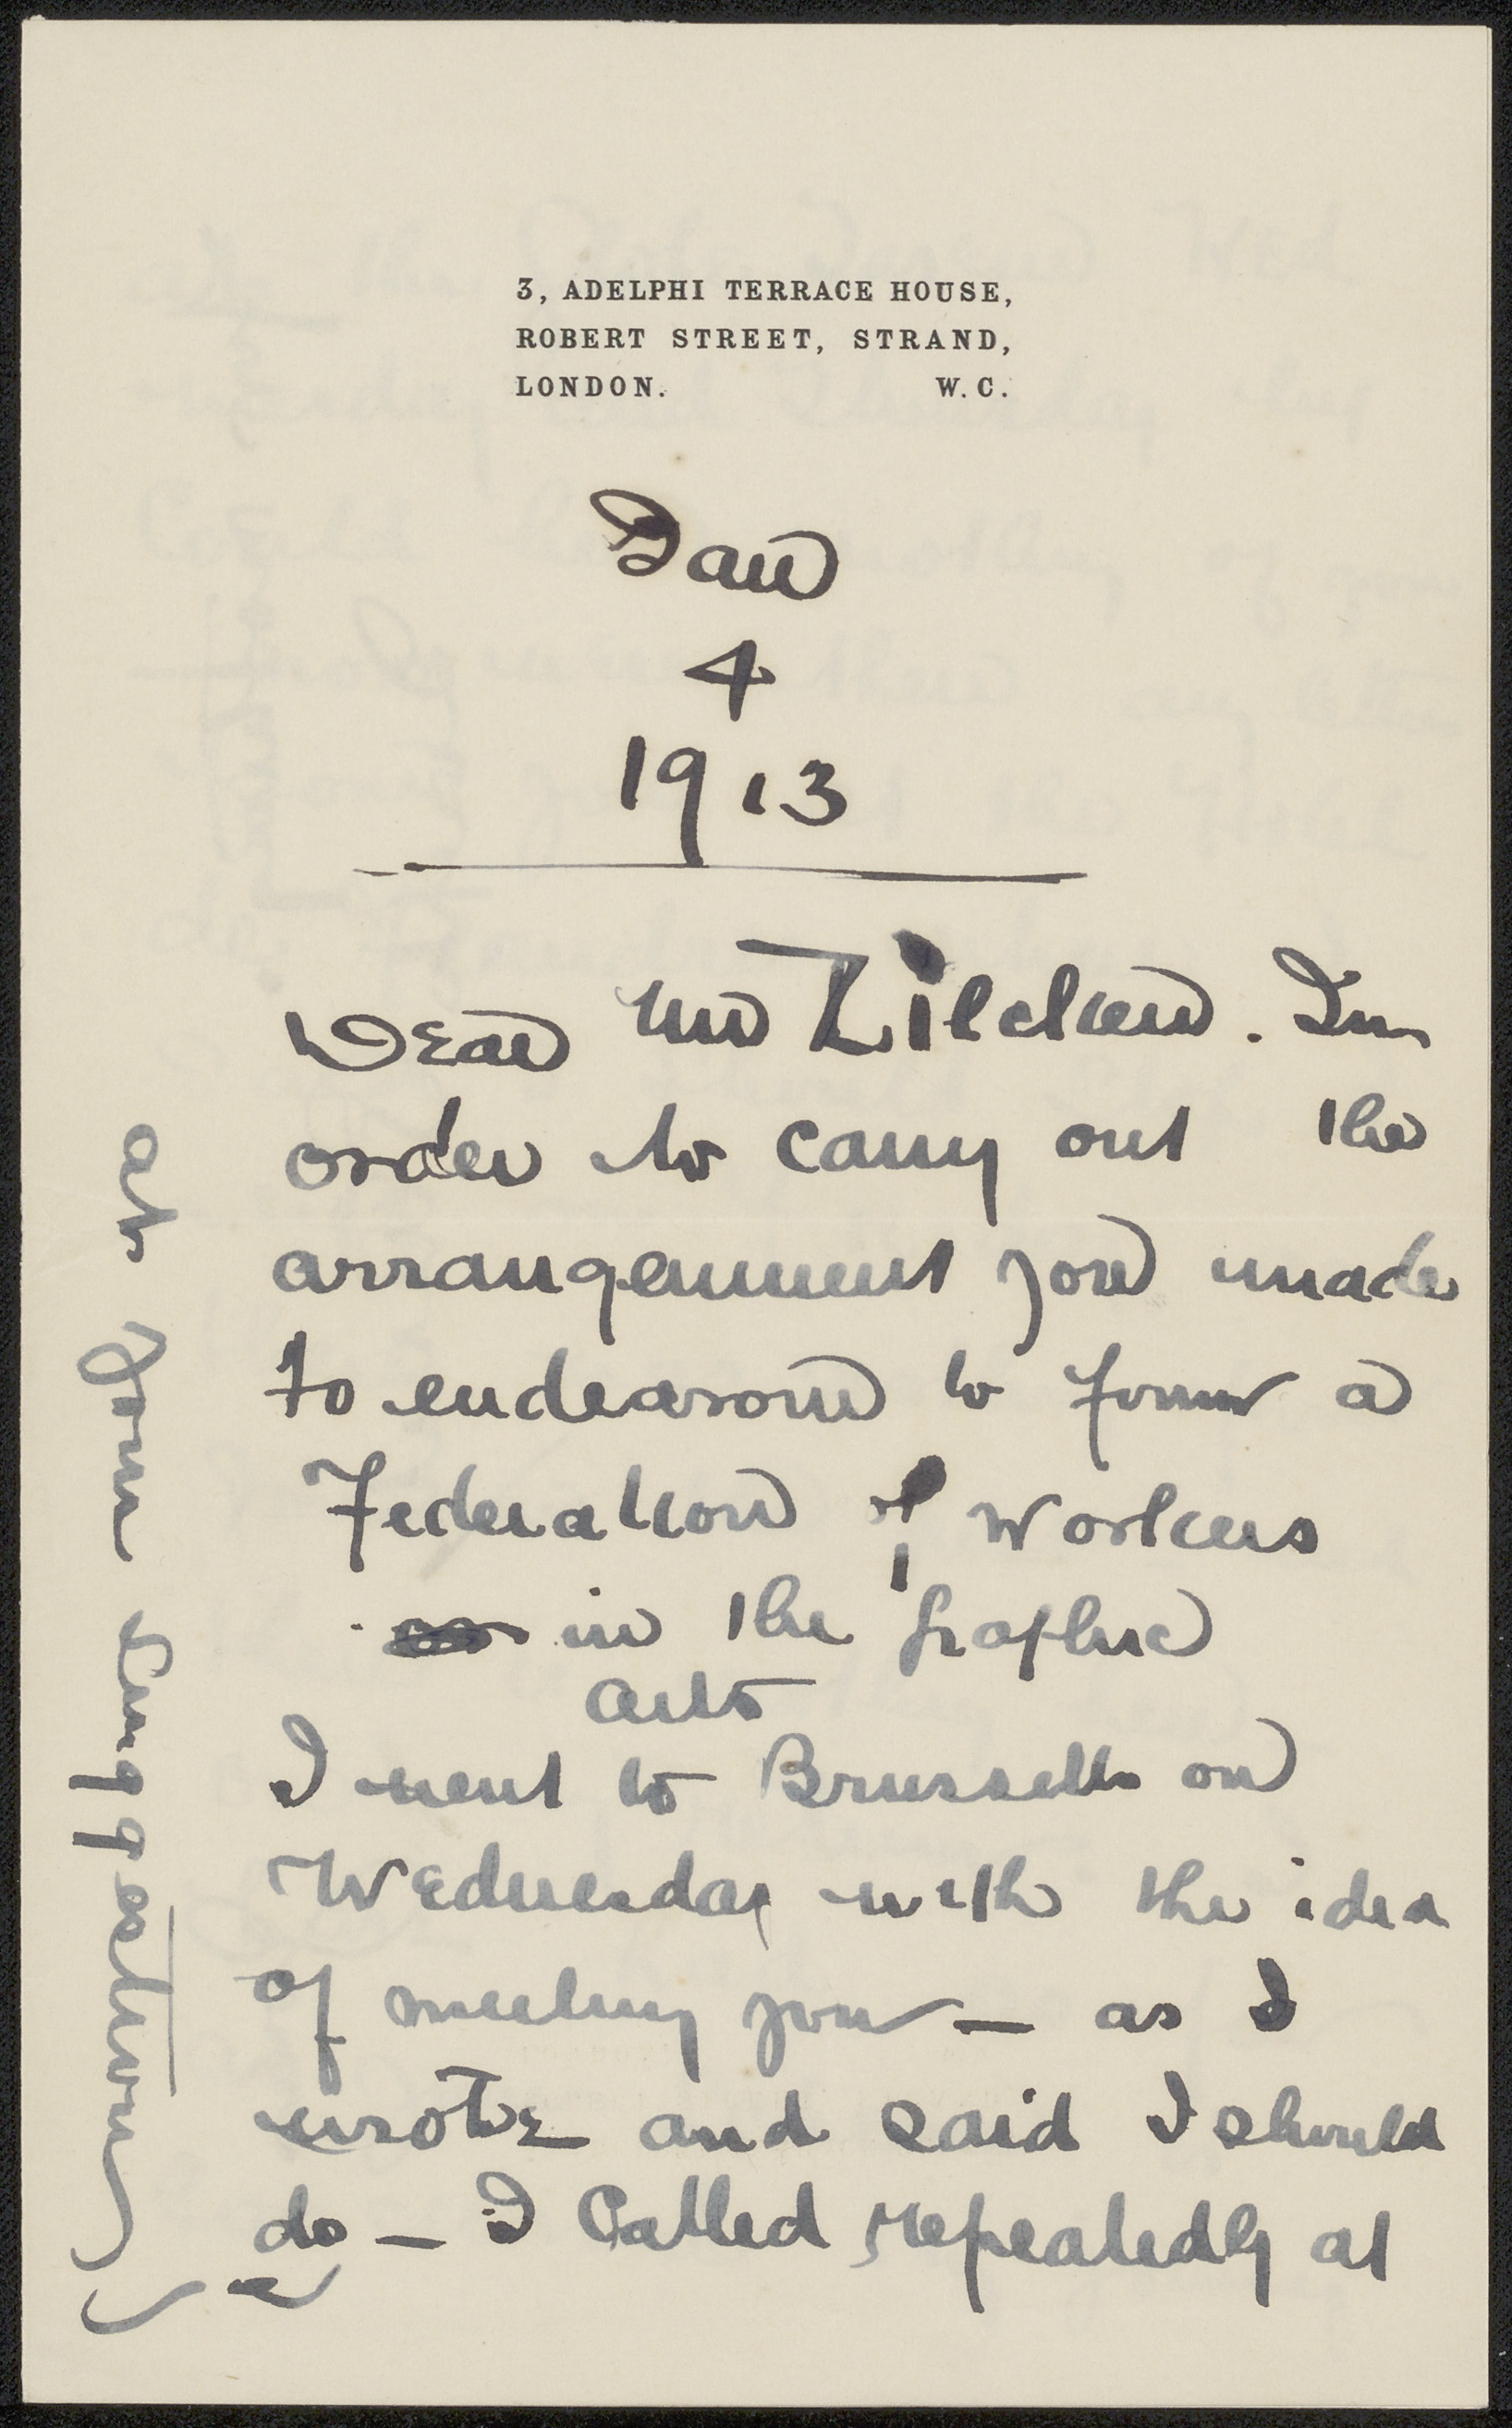 3, ADELPHI TERRACE HOUSE,
ROBERT STREET, STRAND,
LONDON. W. C.
Jan
4
1913
Dear Mr Zilcken. In
order to carry out the
arrangement you made
to endeavour to form a
Federation of Workers
in the Graphic
Arts
I went to Brussells on
Wednesday with the idea
of meeting you — as I
wrote and said I should
do — I Called repeatedly at
at your suggestion